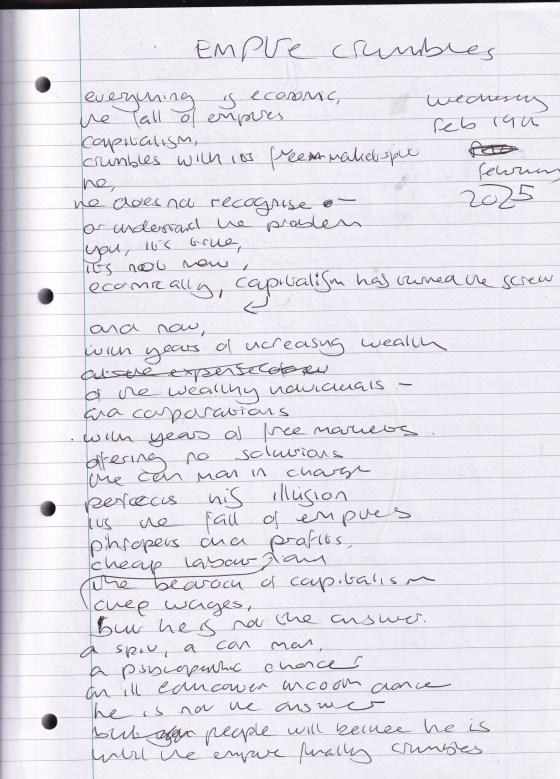 EMPIRE crumbles
everything is economic,
the fall of empires
capitalism,
crumbles with its free market spiv
he,
he does not recognise -
or understand the problem
you, it's true,
it's not new,
ecomically, capitalism has turned the screw
Wednesday
Feb 19th
February
2025
and now,
with years of increasing wealth
at the expense
of the wealthy individuals -
and corporations
with years of free markets.
offering no solutions
the con man in charge
perfects his illusion
its the fall of empires
and profits,
cheap labour,
the bedrock of capitalism
cheep wages,
but he is not the answer.
a spiv, a con man,
a psychopathic chancer
an ill
he is not the answer
but people will believe he is
until the empire finally crumbles